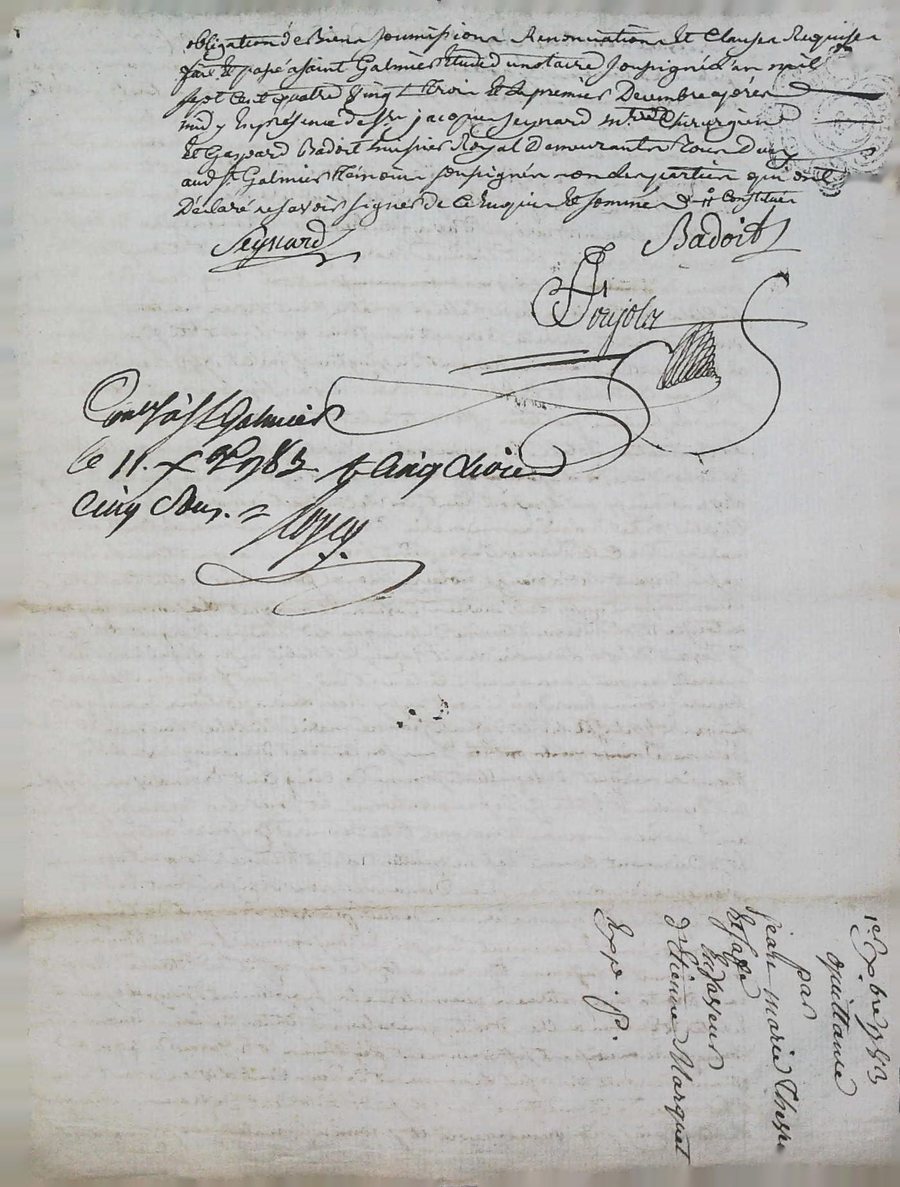 obligation de Biens soumissions Renonciations et Clauses Requises
fait et passé a saint Galmier Etude du notaire soussigné L'an mil
sept cent quatre vingt trois et le premier Decembre après
midy En presence de Sr. jacques seynard mtre Chirurgien
Et Gaspard Badoit huissier Royal Demeurants tous Deux
aud st Galmier temoins soussignés non les parties qui ont
Declaré ne savoir signer de ce Enquis et sommés
Seynard
Badoit
Conlé à St Galmier
le 11. Xbre 1783 cinq
cinq sous.
1er Xbre 1783
quittance
par
jean marie
Et sa fe
En faveur
d'Etienne Marquet
Exp. P.